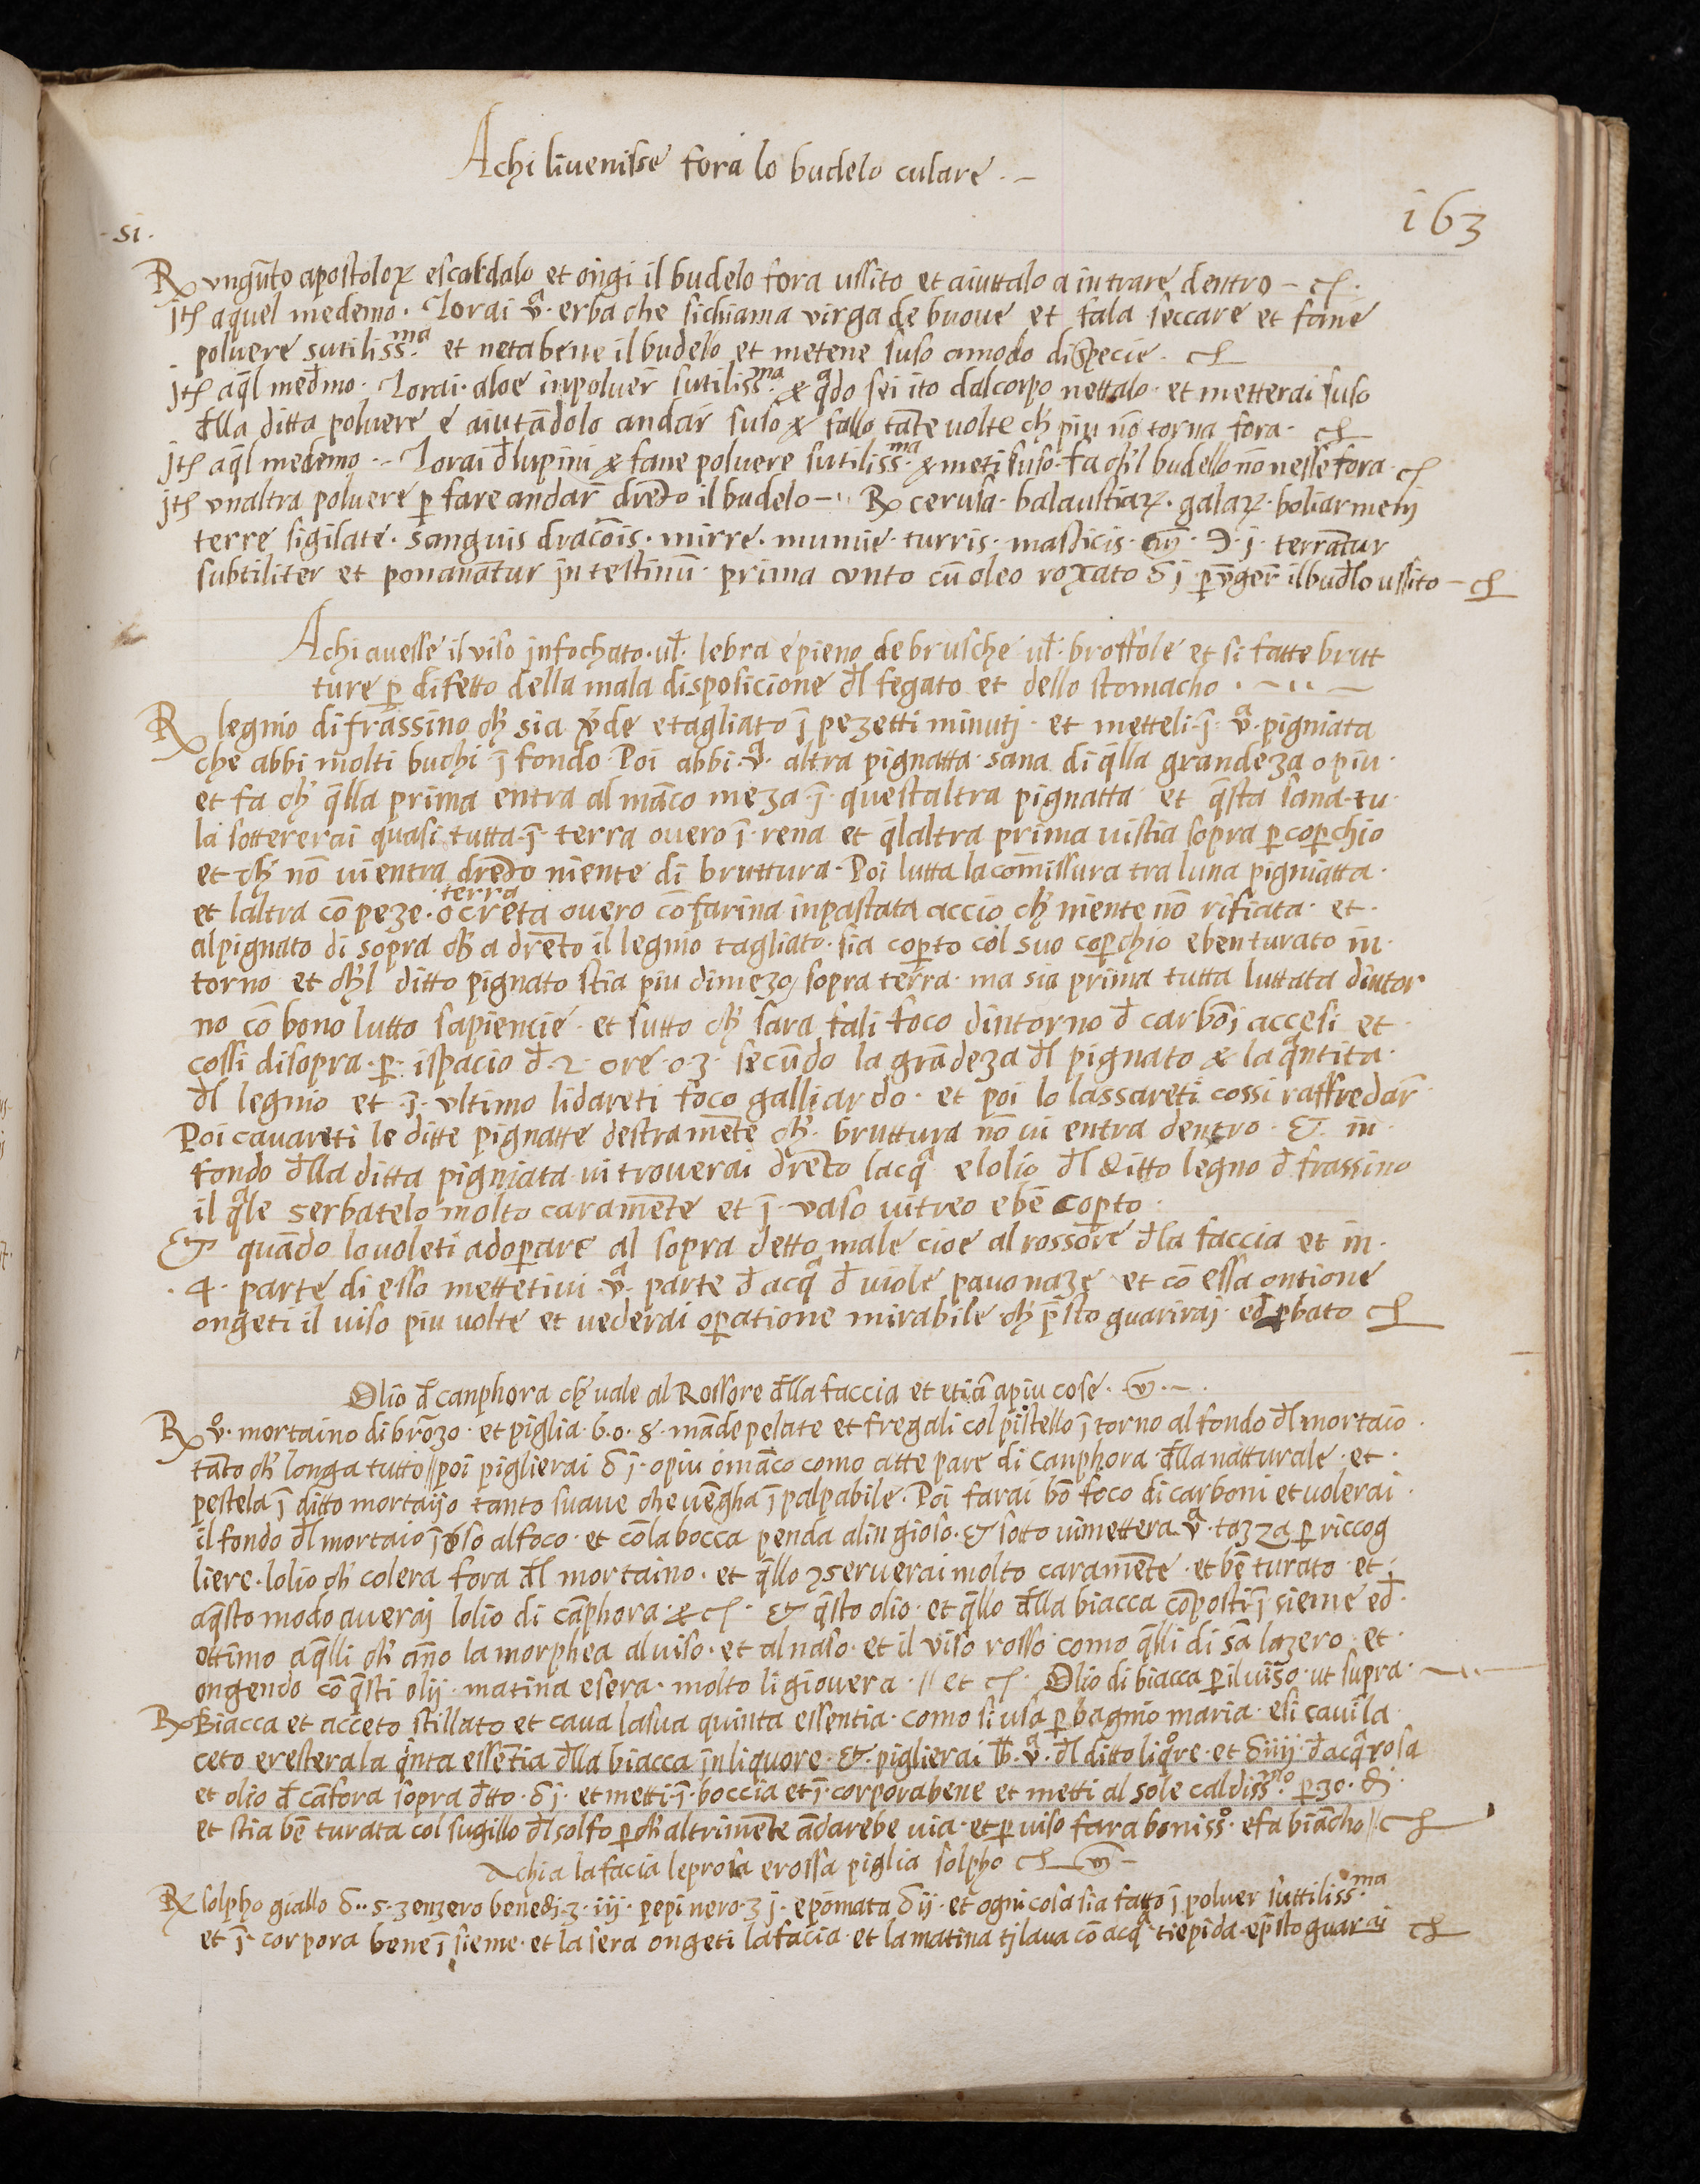 Achi livenisse fora lo budelo culare ·–
163
·si·
℞ vngūto apostoloꝝ escaldalo et ongi il budelo fora ussito et aiuttalo a intrare dentro –
jtē aquel medemo · Torai v̄ᵃ· erba che sichiama virga de buoue et fala seccare et fane
poluere sutiliss.ᵐᵃ et netabene il budelo et metene suso amodo dispecie ·
jtē aq̄l med̄mo · Torai · aloe inpoluer̄ sutiliss.ᵐᵃ & qᵃdo sei ito dalcorpo nettalo · et metterai suso
d̄lla ditta poluere e aiutādolo andar̄ suso & fallo tāte uolte ch̄ piu nō torna fora ·
jtē aq̄l medemo ·· Torai d̄lupini & fane poluere sutiliss.ᵐᵃ & meti suso · fa ch̄'l budello nō nesse fora ·
jtē vnaltra poluere ꝑ fare andar̄ drēto il budelo – ℞ cerusa · balaustiaꝝ · galaꝝ · boliarmenij
terre sigilate · sanguis dracōis · mirre · mumie · turris · masticis · añ · ℈ · j · terrātur
subtiliter et ponanātur jntestinū · prima vnto cū oleo roxato ℥j ꝑ v̄ger̄ ilbud̄lo ussito –
Achi auesse il viso jnfochato · ul̄ · lebra e pieno de brusche ul̄ · broffole et si fatte brut
ture ꝑ difetto della mala disposicione d̄l fegato et dello stomacho ·
℞ legnio di frassino ch̄ sia v̄de e tagliato ī pezetti minutj · et metteli · ī · v̄ᵃ · pigniata
che abbi molti buchi ī fondo · Poi abbi · v̄ᵃ · altra pignatta · sana di q̄lla grandeza o piu ·
et fa ch̄ q̄lla prima entra al māco meza · ī · questaltra pignatta · et q̄sta sana · tu ·
la sottererai quasi · tutta · ī · terra ouero ī · rena et q̄laltra prima uistia sopra ꝑ coꝑchio
et ch̄ nō ui entra drēto niente di bruttura · Poi lutta la cōmissura tra luna pigniatta ·
et laltra cō peze · o creta ouero cō farina inpastata accio ch̄ niente nō rifiata · et ·
terra
alpignato di sopra ch̄ a drēto il legnio tagliato · sia coꝑto col suo coꝑchio e ben turato in ·
torno et ch̄'l ditto pignato stia piu dimezo sopra terra · ma sia prima tutta luttata dintor
no cō bono lutto sapiencie · et sutto ch̄ sara fali foco dintorno d̄ carbōj accesi et
cossi disopra · ꝑ · ispacio d̄ · 2 · ore · o · 3 · secūdo la grādeza d̄l pignato & la qᵃntita ·
d̄l legnio et · ī · vltimo lidareti foco galliardo · et poi lo lassareti cossi raffredar̄
Poi cauareti le ditte pignatte destramēte ch̄ · bruttura nō ui entra dentro · & · in ·
fondo d̄lla ditta pigniata ui trouerai drēto lacqᵃ e lolio d̄l ditto legno d̄ frassino
il qᵃle serbatelo molto caramēte et ī · vaso uitreo e bē coꝑto ·
& quādo lo uoleti adoꝑare al sopra detto male cioe al rossore d̄la faccia et in ·
· 4 · parte di esso mettetiui · v̄ᵃ · parte d̄ acqᵃ d̄ uiole pauonaze et cō essa ontione
ongeti il uiso piu uolte et uederai oꝑatione mirabile ch̄ p̄sto guariraj · ed ꝓbato
Olio d̄ canphora ch̄ uale al Rossore d̄lla faccia et etiā apiu cose ·
℞ v̄º · mortaino di brōzo · et piglia · 6 · o · 8 · māde pelate et fregali col pistello ī torno al fondo d̄l mortaio ·
tāto ch̄ longa tutto // poi piglierai ℥j · opiu o māco como atte pare di canphora · d̄lla natturale · et ·
pestela ī ditto mortaijo tanto suaue che uēgha ī palpabile · Poi farai bō foco di carboni et uolerai ·
il fondo d̄l mortaio ī uso alfoco · et cō la bocca pendā alin gioso · & sotto uimettera v̄ᵃ · tazza ꝑ riccog
liere · lolio ch̄ colera fora d̄l mortaino · et q̄llo ꝯseruerai molto caramēte · et bē turato · et ·
aq̄sto modo averaj lolio di cāphora · & & q̄sto olio · et q̄llo d̄lla biacca cōposti ī sieme ed̄ ·
ottimo aq̄lli ch̄ āno la morphea al uiso · et al naso · et il viso rosso como q̄lli di sā lazero · et ·
ongendo cō q̄sti olij · matina e sera · molto li giouera · // et Olio di biacca ꝑ il uiso · ut supra ·
℞ Biacca et acceto stillato et caua la sua quinta essentia · como si usa ꝑ bagnio maria · e li caui la
ceto e restera la qⁱnta essētia d̄lla biacca jn liquore · & · piglierai ℔ · v̄ᵃ · d̄l ditto liqºre · et ℥iiij · d̄ acqᵃ rosa
et olio d̄ cāfora sopra d̄tto · ℥j · et metti · ī · boccia et ī · corpora bene et metti al sole caldiss.ᵐᵒ ꝑ 30 · di ·
et stia bē turata col sugillo d̄l solfo ꝑ ch̄ altrimēte ādarebe uia · et ꝑ uiso fara boniss.º · e fa biācho //
Achi a la facia leprosa e rossa piglia solpho
℞ solpho giallo ℥ ·· 5 · zenzero benedi · ʒ · iij · pepi nero · ʒ j · e pomata ℥ij · et ogni cosa sia fatto ī poluer suttiliss.ᵐᵃ
et ī · corpora bene ī sieme · et la sera ongeti la facia · et la matina tj laua cō acqᵃ tiepida · e p̄sto guarai